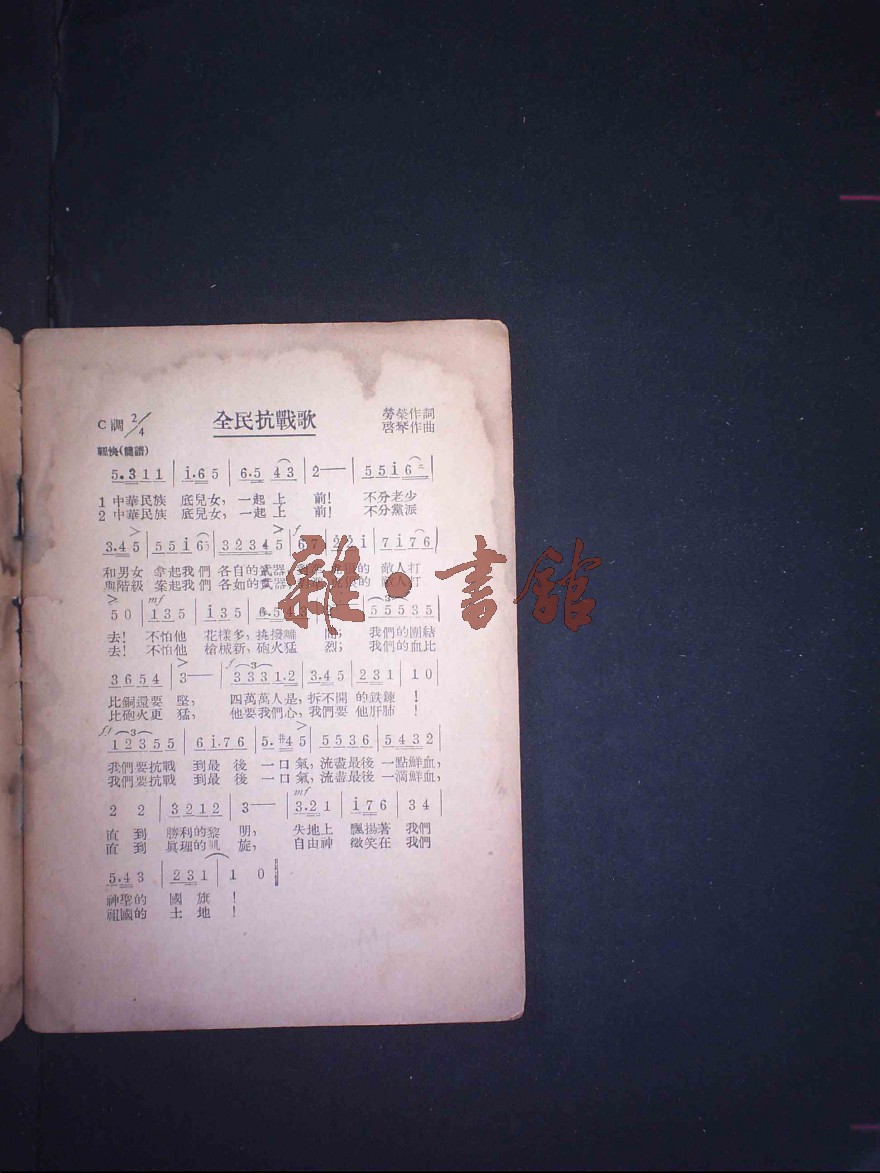 全民抗戰歌
C調 2/4
勞榮作詞
啓琴作曲
輕快(簡譜)
5.311 | i.65 | 6.5 43 | 2— | 55i6
1 中華民族 底兒女, 一起上 前! 不分老少
2 中華民族 底兒女, 一起上 前! 不分黨派
3.45 | 55i6 | 32345 | 67 | i | 7i76
和男女 拿起我們 各自的武器 的 敵人打
與階級 案起我們 各如的武器 的 敵人打
50 | mf 135 | i35 | 55535
去! 不怕他 花樣多, 挑撥離 間; 我們的團結
去! 不怕他 槍械新, 砲火猛 烈; 我們的血比
3654 | 3— | f 3331.2 | 3.45 | 231 | 10
比鋼還要 堅, 四萬萬人是, 拆不開 的鉄鍊 !
比砲火更 猛, 他要我們心, 我們要 他肝肺 !
12355 | 6i.76 | 5.#45 | 5536 | 5432
我們要抗戰 到最 後 一口氣, 流盡最後 一點鮮血,
我們要抗戰 到最 後 一口氣, 流盡最後 一滴鮮血,
2 2 | 3212 | 3— | mf 3.21 | i76 | 34
直 到 勝利的黎 明, 失地上 飄揚著 我們
直 到 眞理的凱 旋, 自由神 微笑在 我們
5.43 | 231 | 1 0
神聖的 國 旗 !
祖國的 土 地 !
雜·書館